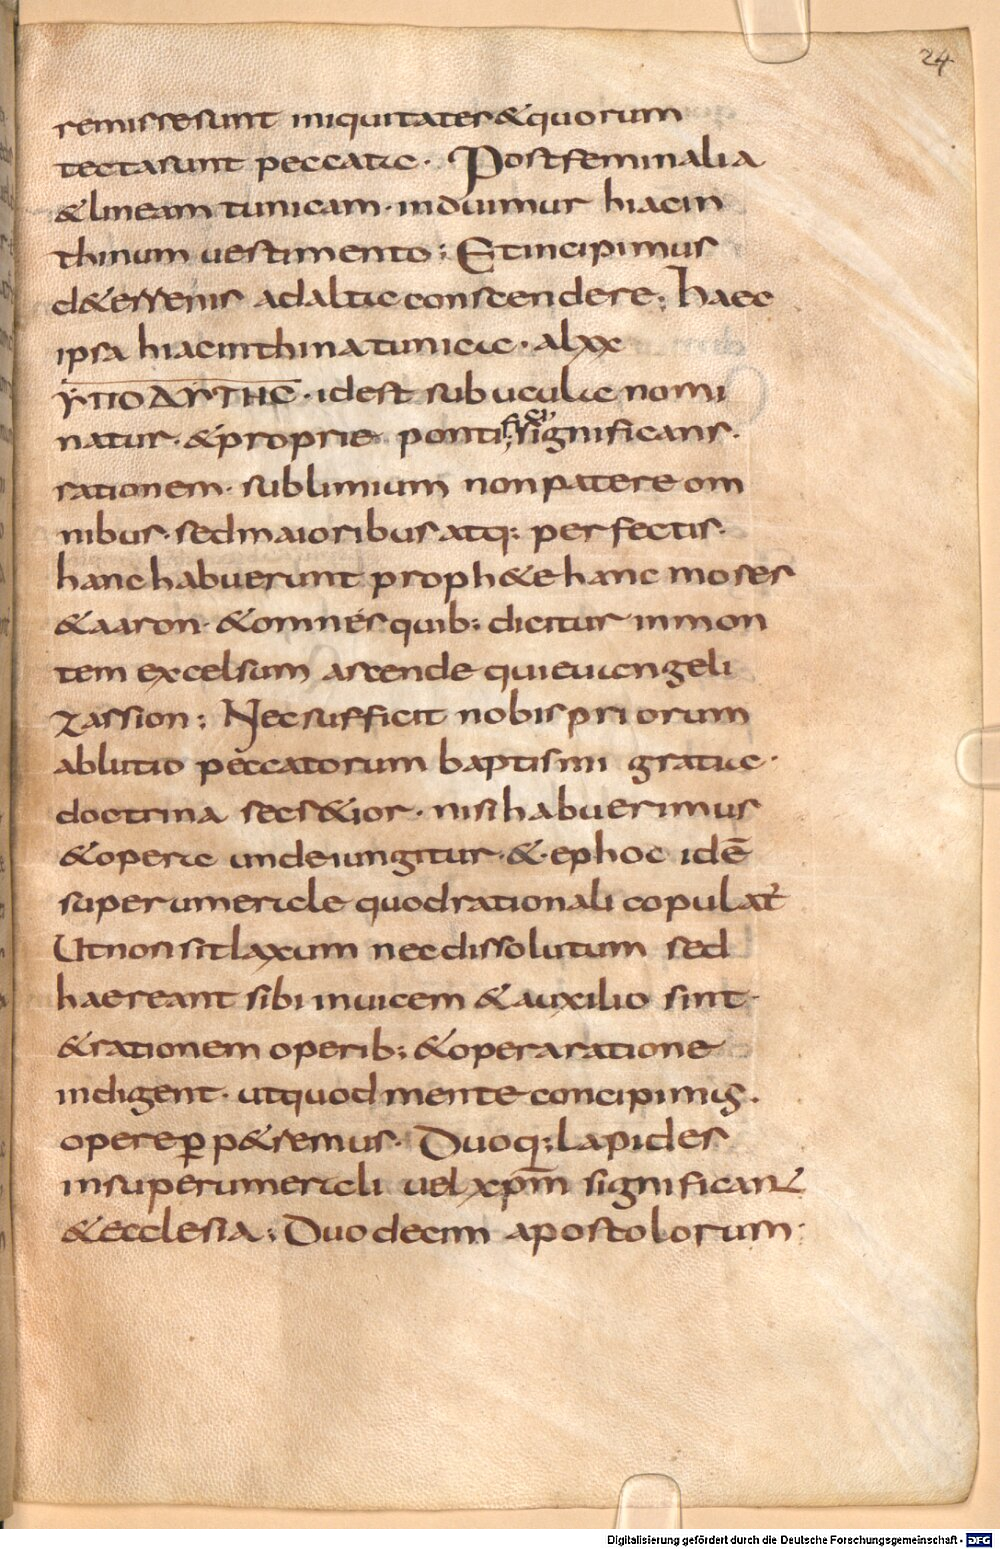 24
remissesunt iniquitates&quorum
tectasunt peccata. Postfeminalia
&lineam tunicam. induimur hiacin
thinum uestimento; Etincipimus
d&errenis adalta conscendere; haec
ipsa hiacinthinatunica. alxx
ΥΠΟΔΥΤΗC. idest subucula nomi
natur. &proprie pontifici significans.
rationem. sublimium nonpatere om
nibus. sedmaioribus atq; perfectis.
hanc habuerunt proph&e hanc moses
&aaron. &omnes quib; dicitur inmon
tem excelsum ascende quieuangeli
zassion; Necsufficit nobispriorum
ablutio peccatorum baptismi gratia.
doctrina secr&ior. nisihabuerimus
&opera undeiungitur. &ephoc idē
superumerale quodrationali copulat̄
Utnonsitlaxum necdissolutum sed
haereant sibi inuicem &auxilio sint.
&rationem operib; &opera ratione
indigent. utquod mente concipimus.
opereꝑp&remus. Duoq; lapides
insuperumerali uel xp̄m significant
&ecclesia; Duodecim apostolorum
Digitalisierung gefördert durch die Deutsche Forschungsgemeinschaft - DFG